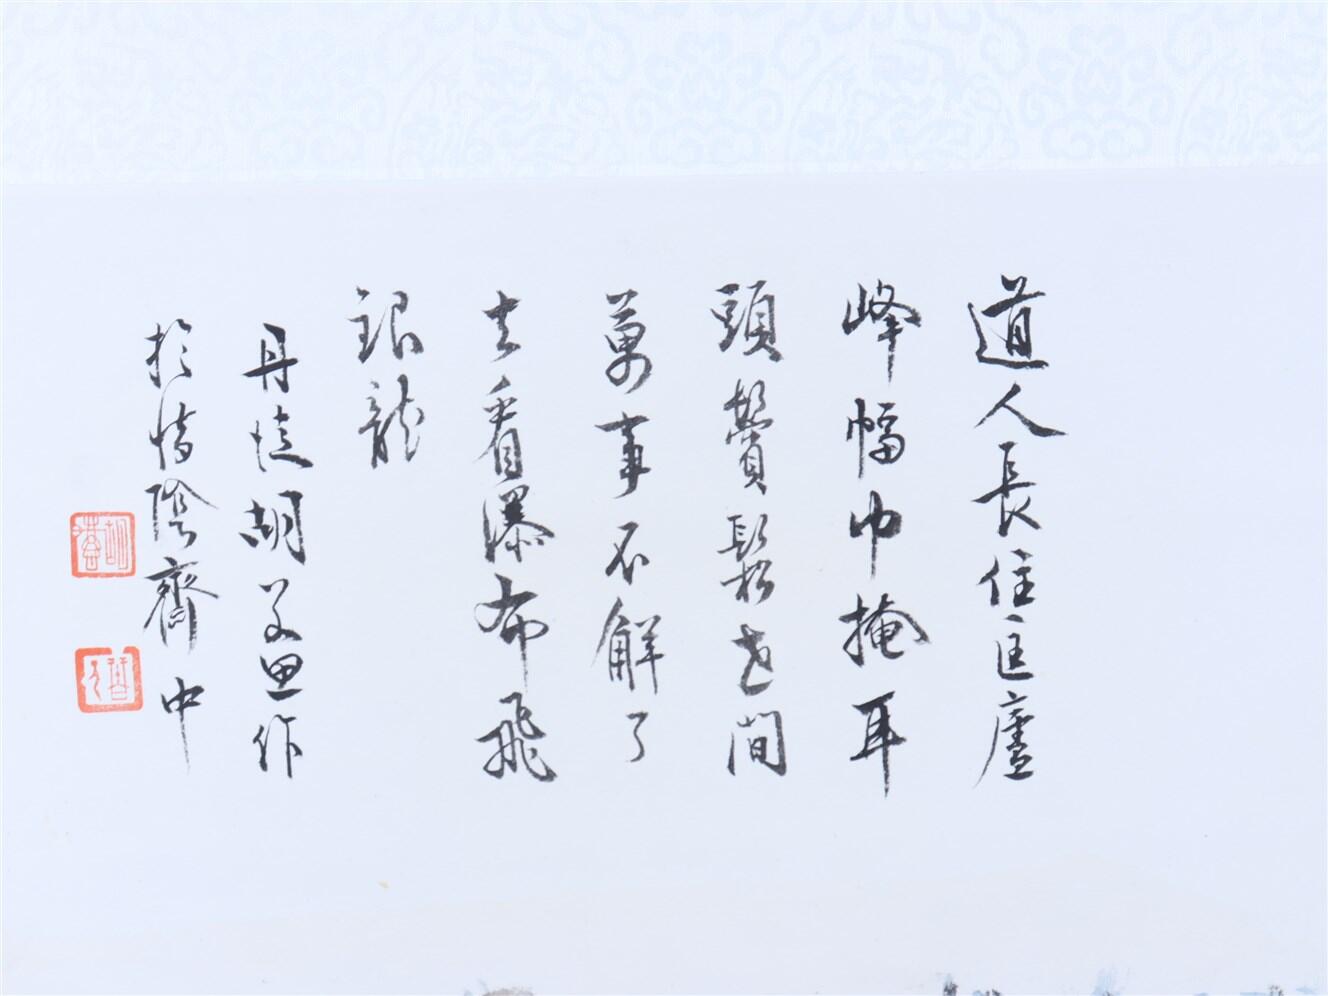 道人長住匡廬
峰幅巾掩耳
頭鬢鬆世間
萬事不解了
去看瀑布飛
銀龍
丹徒胡
作
於惜陰齋中